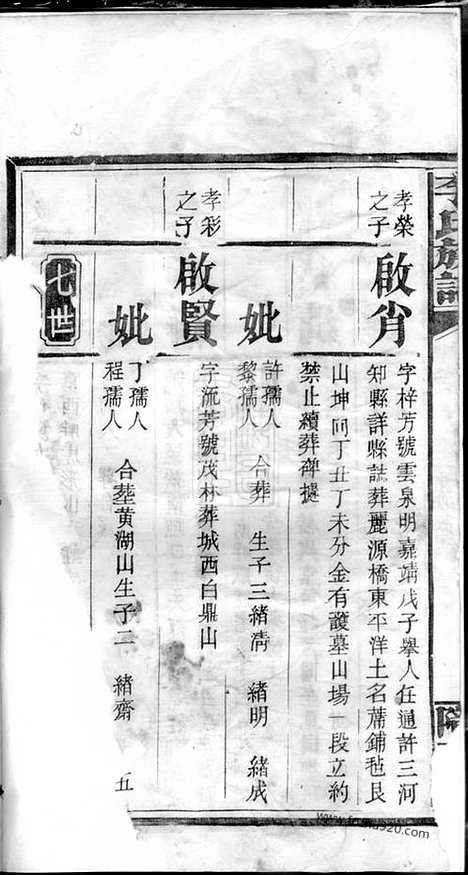 李氏族譜
孝榮之子
啟肖
字梓芳號雲泉明嘉靖戊子舉人任通許三河
知縣詳縣誌葬麗源橋東平洋土名蓆鋪
山坤向丁丑丁未分金有護墓山場一段立約
禁止續葬碑據
妣
許孺人
黎孺人
合葬 生子三緒清 緒明 緒成
孝彩之子
啟賢
字流芳號茂林葬城西白鼎山
妣
丁孺人
程孺人
合塟黄湖山生子二 緒齋
七世
五